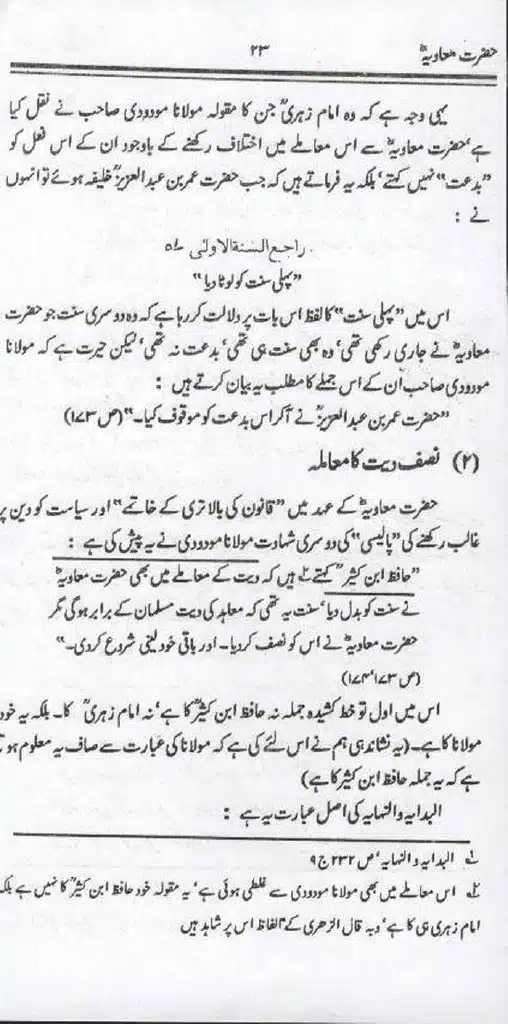 حضرت معاویہؓ ۲۳
یہی وجہ ہے کہ وہ امام زہریؒ جن کا مقولہ مولانا مودودی صاحب نے نقل کیا
ہے‘ حضرت معاویہؓ سے اس معاملے میں اختلاف رکھنے کے باوجود ان کے اس فعل کو
”بدعت“ نہیں کہتے‘ بلکہ یہ فرماتے ہیں کہ جب حضرت عمر بن عبدالعزیزؒ خلیفہ ہوئے تو انہوں
نے :
راجع السنة الاولیٰ لہ
”پہلی سنت کو لوٹا دیا“
اس میں ”پہلی سنت“ کا لفظ اس بات پر دلالت کر رہا ہے کہ وہ دوسری سنت جو حضرت
معاویہؓ نے جاری رکھی تھی‘ وہ بھی سنت ہی تھی‘ بدعت نہ تھی‘ لیکن حیرت ہے کہ مولانا
مودودی صاحب ان کے اس جملے کا مطلب یہ بیان کرتے ہیں :
”حضرت عمر بن عبدالعزیزؒ نے آکر اس بدعت کو موقوف کیا۔“ (ص ۱۷۳)
(۲) نصف دیت کا معاملہ
حضرت معاویہؓ کے عہد میں ”قانون کی بالاتری کے خاتمے“ اور سیاست کو دین پر
غالب رکھنے کی ”پالیسی“ کی دوسری شہادت مولانا مودودی نے یہ پیش کی ہے :
”حافظ ابن کثیرؒ کہتے ہیں کہ دیت کے معاملے میں بھی حضرت معاویہؓ
نے سنت کو بدل دیا‘ سنت یہ تھی کہ معاہد کی دیت مسلمان کے برابر ہوگی مگر
حضرت معاویہؓ نے اس کو نصف کردیا۔ اور باقی خود لینی شروع کردی۔“
(ص ۱۷۳‘ ۱۷۴)
اس میں اول تو خط کشیدہ جملہ نہ حافظ ابن کثیرؒ کا ہے‘ نہ امام زہریؒ کا۔ بلکہ یہ خود
مولانا کا ہے۔ (یہ نشاندہی ہم نے اس لئے کی ہے کہ مولانا کی عبارت سے صاف یہ معلوم ہوتا
ہے کہ یہ جملہ حافظ ابن کثیرؒ کا ہے)
البدایہ والنہایہ کی اصل عبارت یہ ہے :
۱ البدایہ والنہایہ‘ ص ۲۳۲ ج ۹
۲ اس معاملے میں بھی مولانا مودودی سے غلطی ہوئی ہے‘ یہ مقولہ خود حافظ ابن کثیرؒ کا نہیں ہے بلکہ
امام زہری ہی کا ہے‘ وبہ قال الزھری کے الفاظ اس پر شاہد ہیں